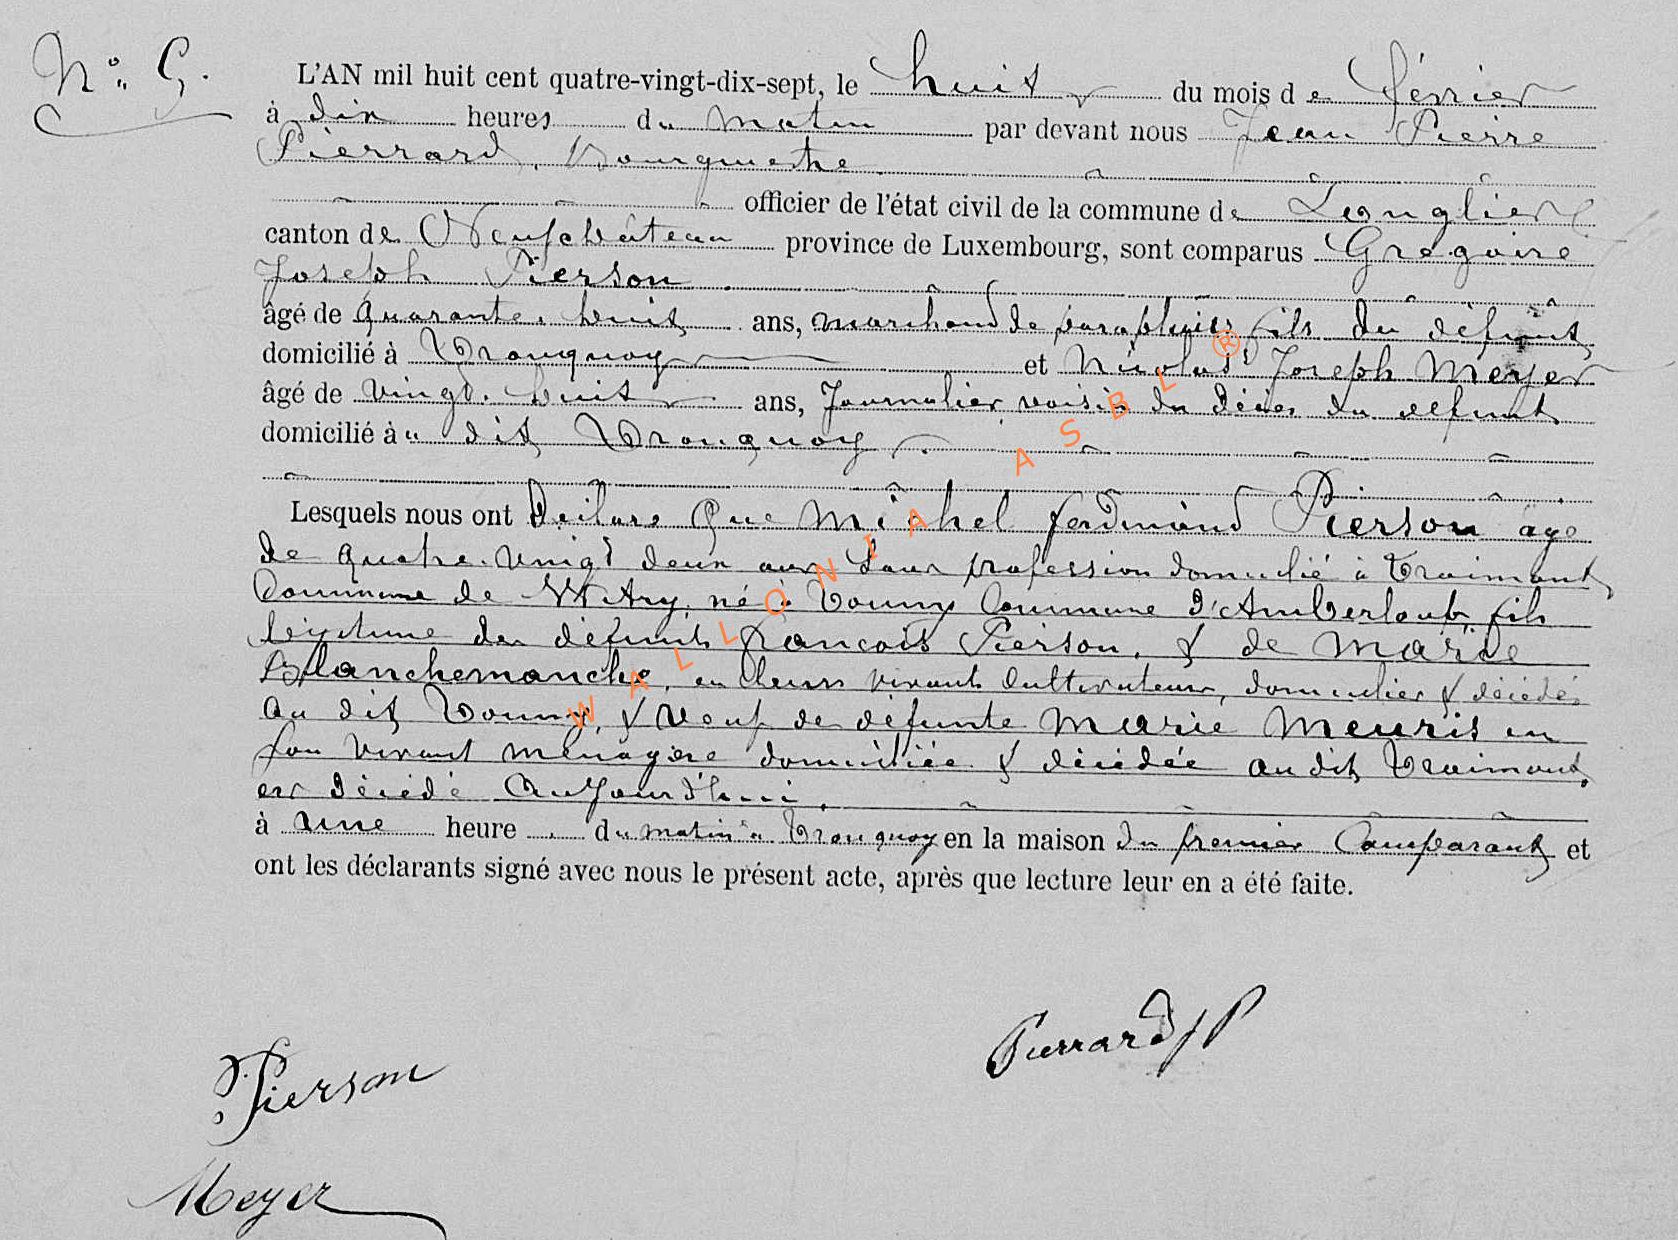 N° 5.
L'AN mil huit cent quatre-vingt-dix-sept, le huit du mois de février
à dix heures du matin par devant nous Jean Pierre
Pierrard, Bourgmestre
officier de l'état civil de la commune de Longlier
canton de Neufchâteau province de Luxembourg, sont comparus Grégoire
Joseph Pierson
âgé de quarante-huit ans, marchand de parapluies fils du défunt
domicilié à Tronquoy et Nicolas Joseph Meyer
âgé de vingt-huit ans, Journalier voisin du défunt
domicilié à dit Tronquoy
Lesquels nous ont Déclaré que Michel ferdinand Pierson âgé
de quatre-vingt deux ans sans profession domicilié à Traimont
Commune de Witry, né à Tounÿ Commune d'Amberloup fils
légitime des défunts francois Pierson, & de Marie
Blanchemanche, en leurs vivants Cultivateurs, domiciliés & décédés
au dit Tounÿ, & veuf de défunte Marie Meuris en
son vivant ménagère domiciliée & décédée au dit Traimont,
est décédé Aujourd'hui,
à une heure du matin à Tronquoy en la maison du premier Comparant et
ont les déclarants signé avec nous le présent acte, après que lecture leur en a été faite.
Pierrard JP
Pierson
Meyer
WALLONIA ASBL ®